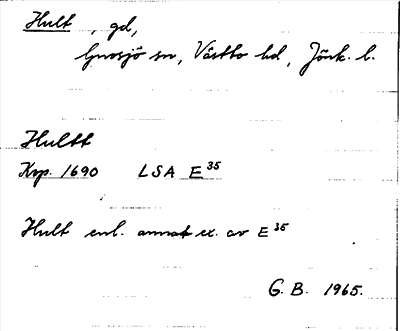 Hult, gd,
Gnosjö sn, Västbo hd, Jönk. l.
Hultt
Krp. 1690 LSA E 35
Hult enl. annat ex. av E 35
G. B. 1965.